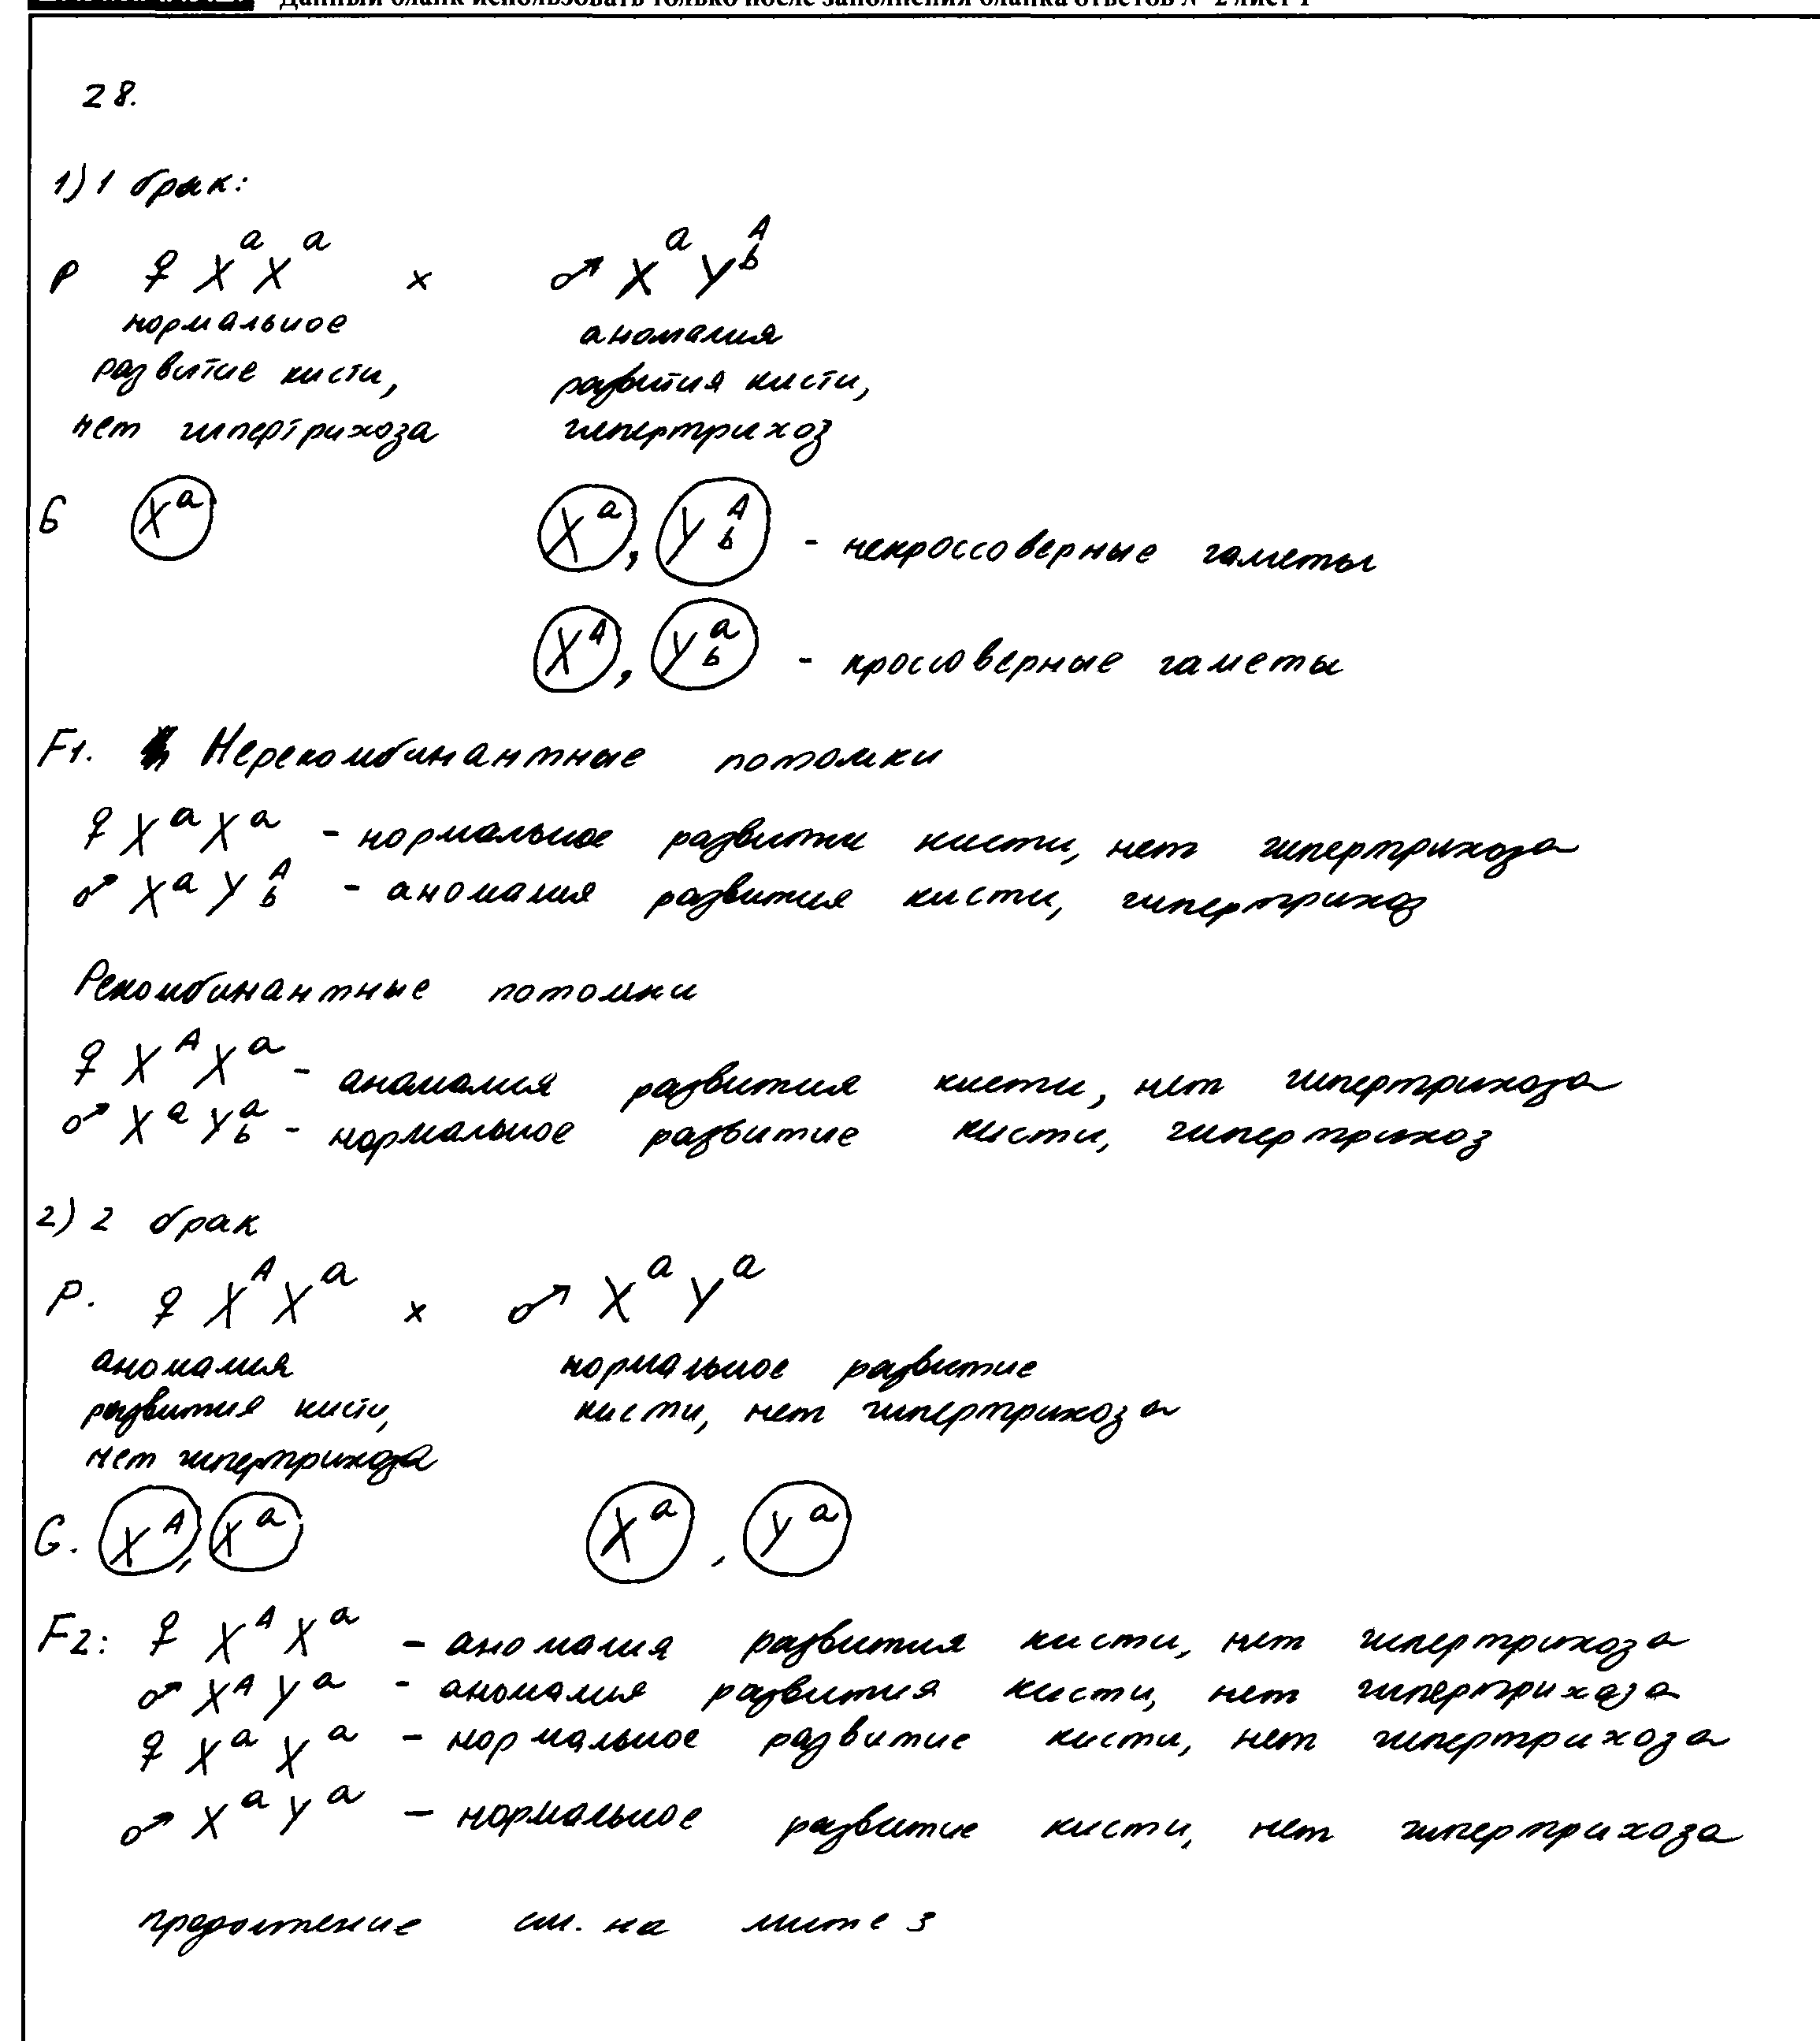 Данный бланк использовать только после заполнения бланка ответов № 2 лист 1
28.
1) 1 брак:
P ♀ XᵃXᵃ x ♂ XᵃYᴬb
нормальное аномалия
развитие кисти, развития кисти,
нет гипертрихоза гипертрихоз
G Xᵃ Xᵃ, Yᴬb - некроссоверные гаметы
Xᴬ, Yᵃb - кроссоверные гаметы
F1. Нерекомбинантные потомки
♀ XᵃXᵃ - нормальное развитие кисти, нет гипертрихоза
♂ XᵃYᴬb - аномалия развития кисти, гипертрихоз
Рекомбинантные потомки
♀ XᴬXᵃ - аномалия развития кисти, нет гипертрихоза
♂ XᵃYᵃb - нормальное развитие кисти, гипертрихоз
2) 2 брак
P. ♀ XᴬXᵃ x ♂ XᵃYᵃ
аномалия нормальное развитие
развития кисти, кисти, нет гипертрихоза
нет гипертрихоза
G. Xᴬ, Xᵃ Xᵃ, Yᵃ
F2: ♀ XᴬXᵃ - аномалия развития кисти, нет гипертрихоза
♂ XᴬYᵃ - аномалия развития кисти, нет гипертрихоза
♀ XᵃXᵃ - нормальное развитие кисти, нет гипертрихоза
♂ XᵃYᵃ - нормальное развитие кисти, нет гипертрихоза
продолжение см. на листе 3